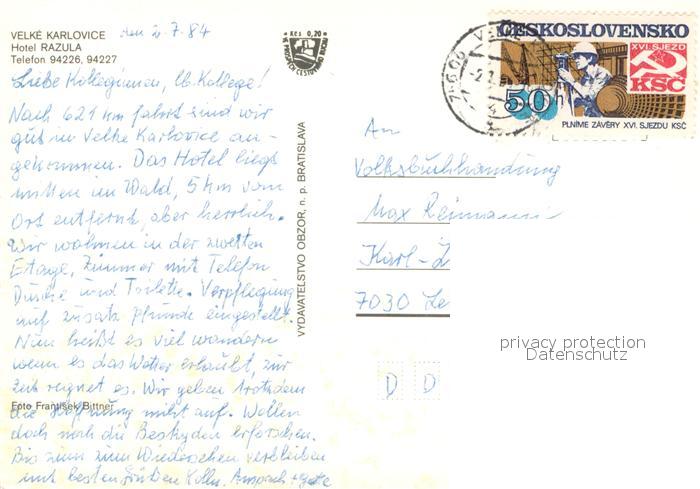 VELKÉ KARLOVICE
Hotel RAZULA
Telefon 94226, 94227
den 2.7.84
Liebe Kolleginnen, lb. Kollege!
Nach 621 km Fahrt sind wir
gut in Velke Karlovice an-
gekommen. Das Hotel liegt
mitten im Wald, 5 km vom
Ort entfernt, aber herrlich.
Wir wohnen in der zweiten
Etage, Zimmer mit Telefon
Dusche und Toilette. Verpflegung
auf zusatz pfunde eingestellt.
Nun heißt es viel wandern
wenn es das Wetter erlaubt, zur
Zeit regnet es. Wir geben trotzdem
die Hoffnung nicht auf. Wollen
doch noch die Beskyden erforschen.
Bis zum zum Wiedersehen verbleiben
mit besten Grüßen Kolln.
Foto František Bittner
Kčs 0,20
VYDAVATELSTVO OBZOR, n. p. BRATISLAVA
ČESKOSLOVENSKO
XVI. SJEZD
KSČ
50h
PLNÍME ZÁVĚRY XVI. SJEZDU KSČ
An
Volksbuchhandlung
Max Reimann
Karl-L
7030 Le
D D
privacy protection
Datenschutz